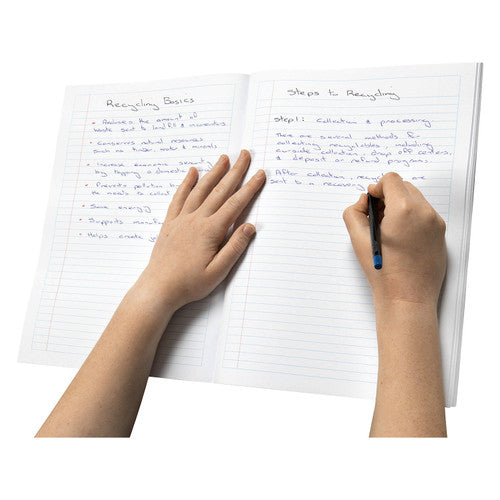 Recycling Basics
• Reduces the amount of
waste sent to landfill & incinerators
• Conserves natural resources
such as timber, water & minerals
• Increase economic security
by tapping a domestic
• Prevents pollution by
the need to collect
• Save energy
• Supports manuf
• Helps create
Steps to Recycling
Step 1: Collection & processing
There are several methods for
collecting recyclables, including
curbside collection, drop off centers,
& deposit or refund programs.
After collection, recyclables are
sent to a recovery